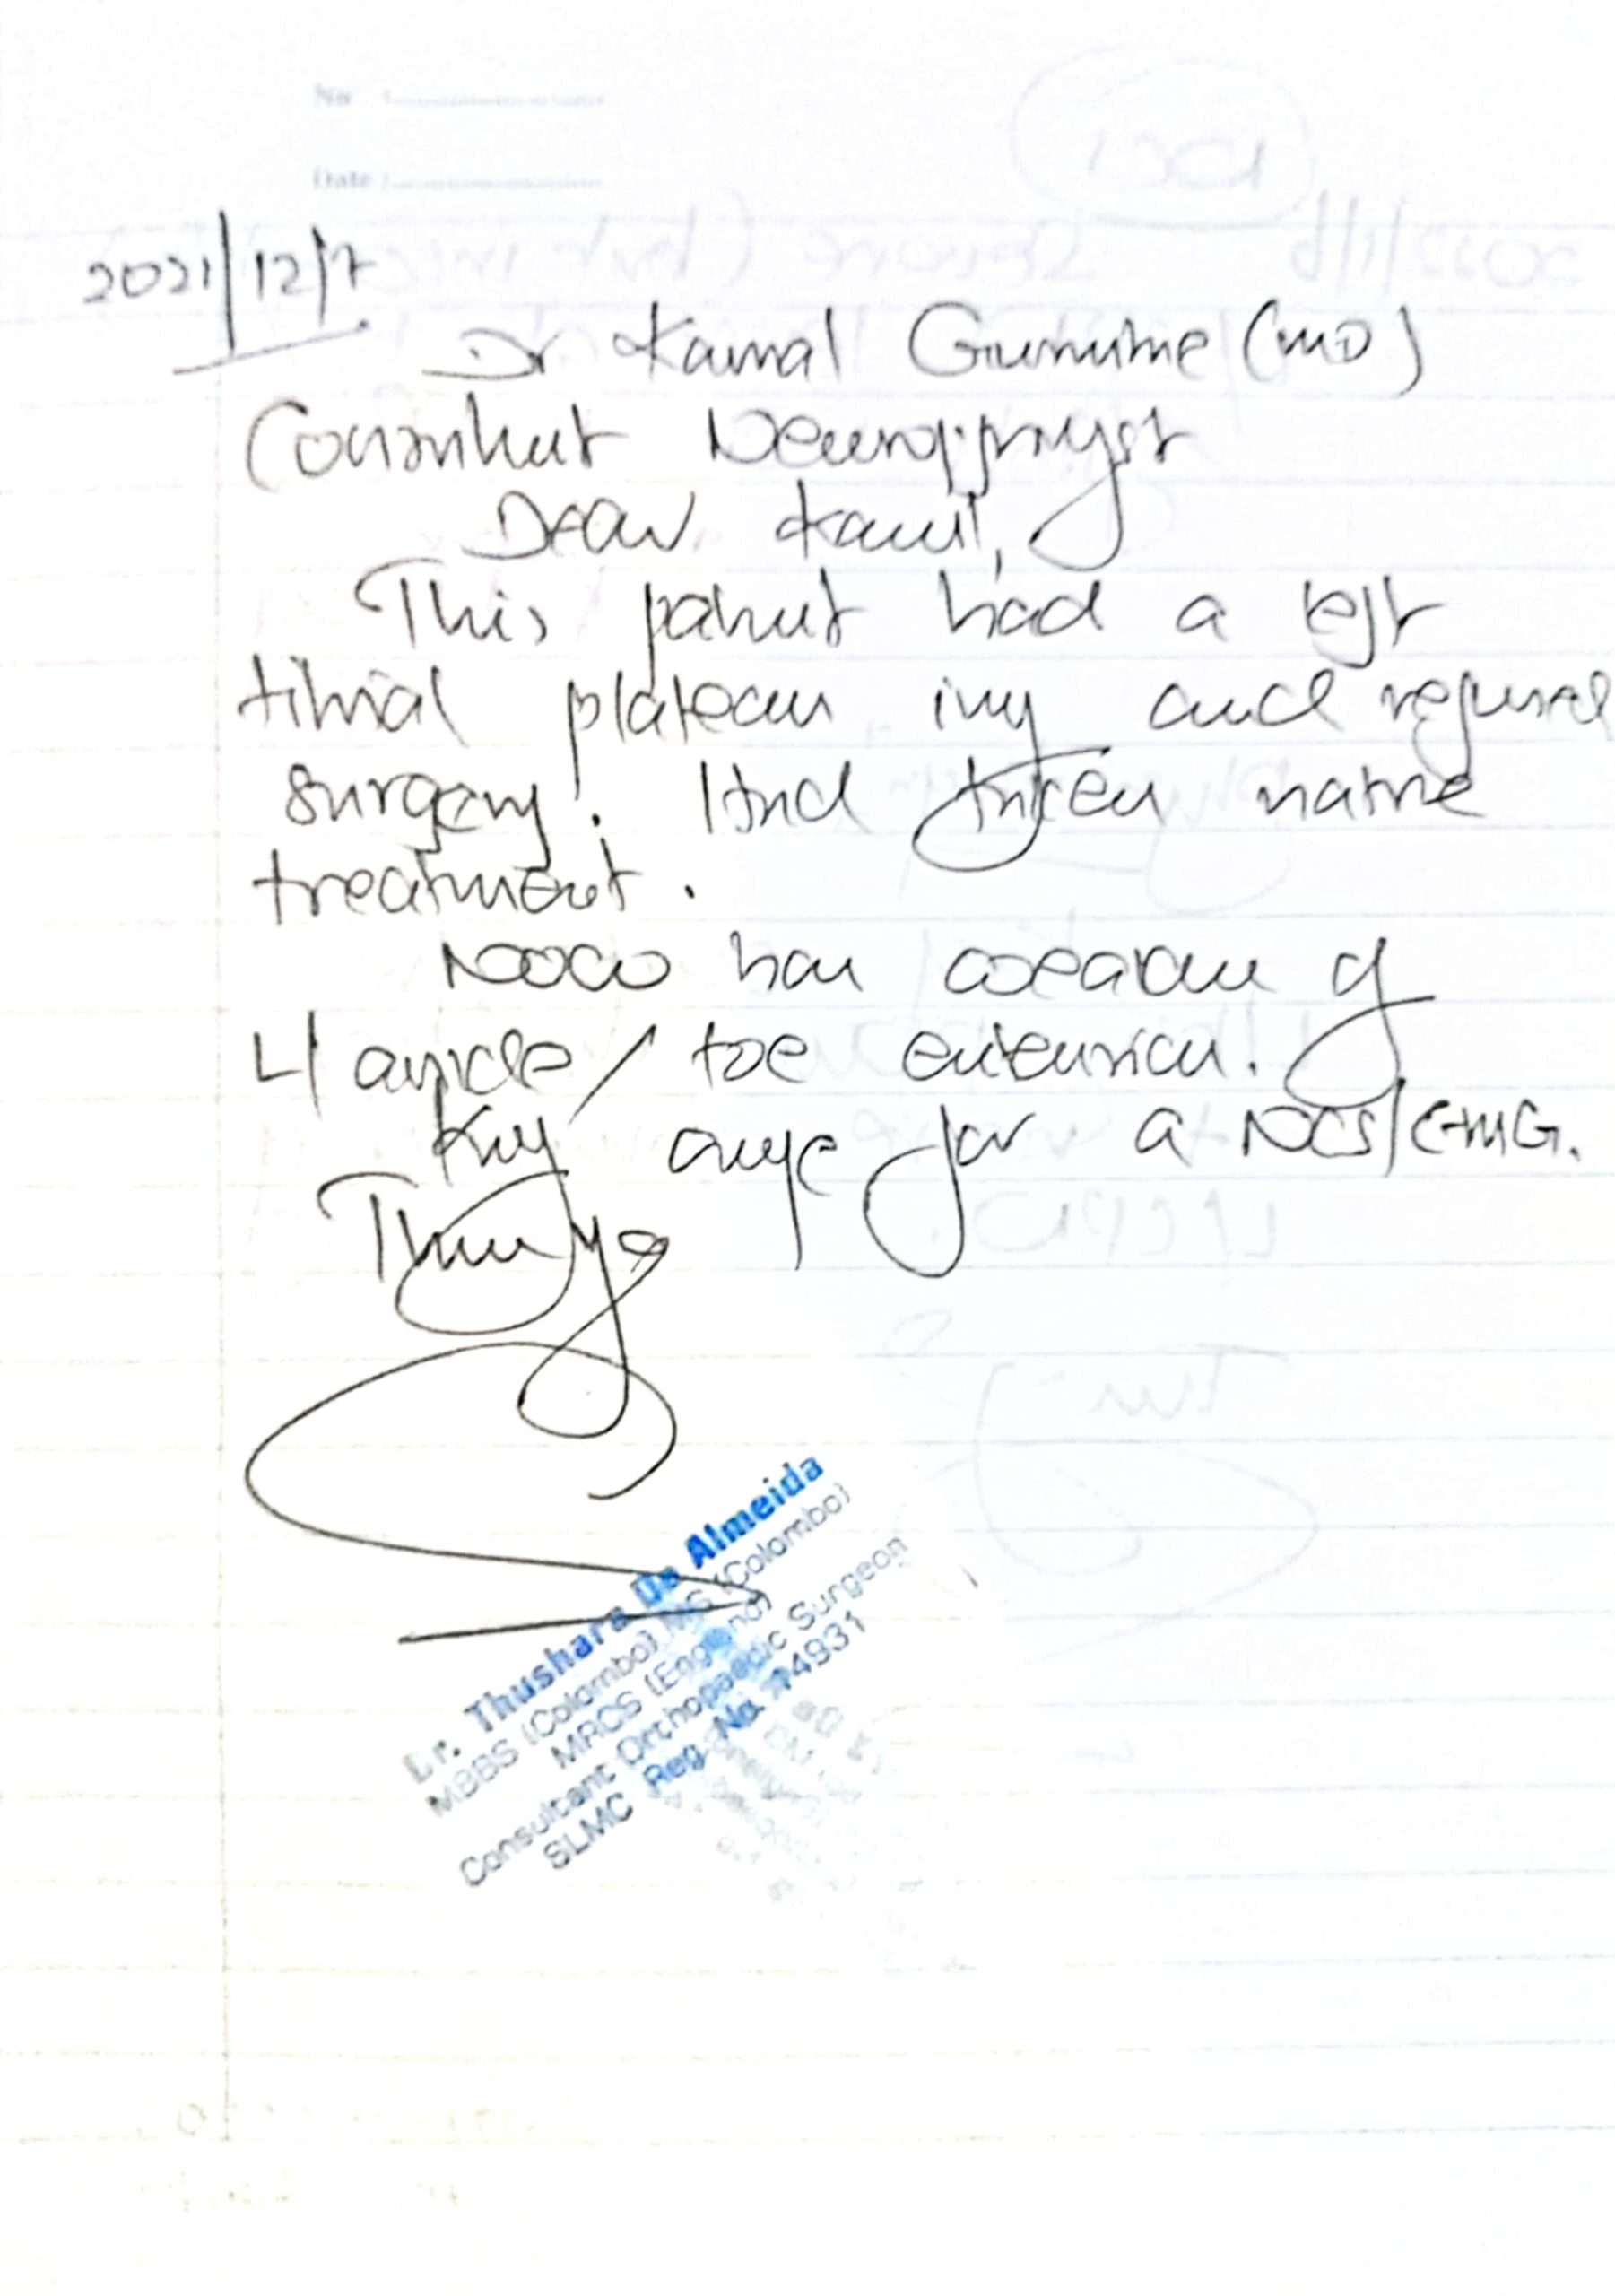 No :
Date :
2021/12/7
Dr Kamal (MD)
Consultant Neurophysst
Dear Kamal,
This patient had a left
tibial plateau inj and refused
surgery. Had taken native
treatment.
Now has weakness of
Lt ankle / toe extension.
Kindly arrange for a NCS/EMG.
Thank you
Dr. Thushara De Almeida
MBBS (Colombo) MS (Colombo)
MRCS (England)
Consultant Orthopaedic Surgeon
SLMC Reg. No. 14931